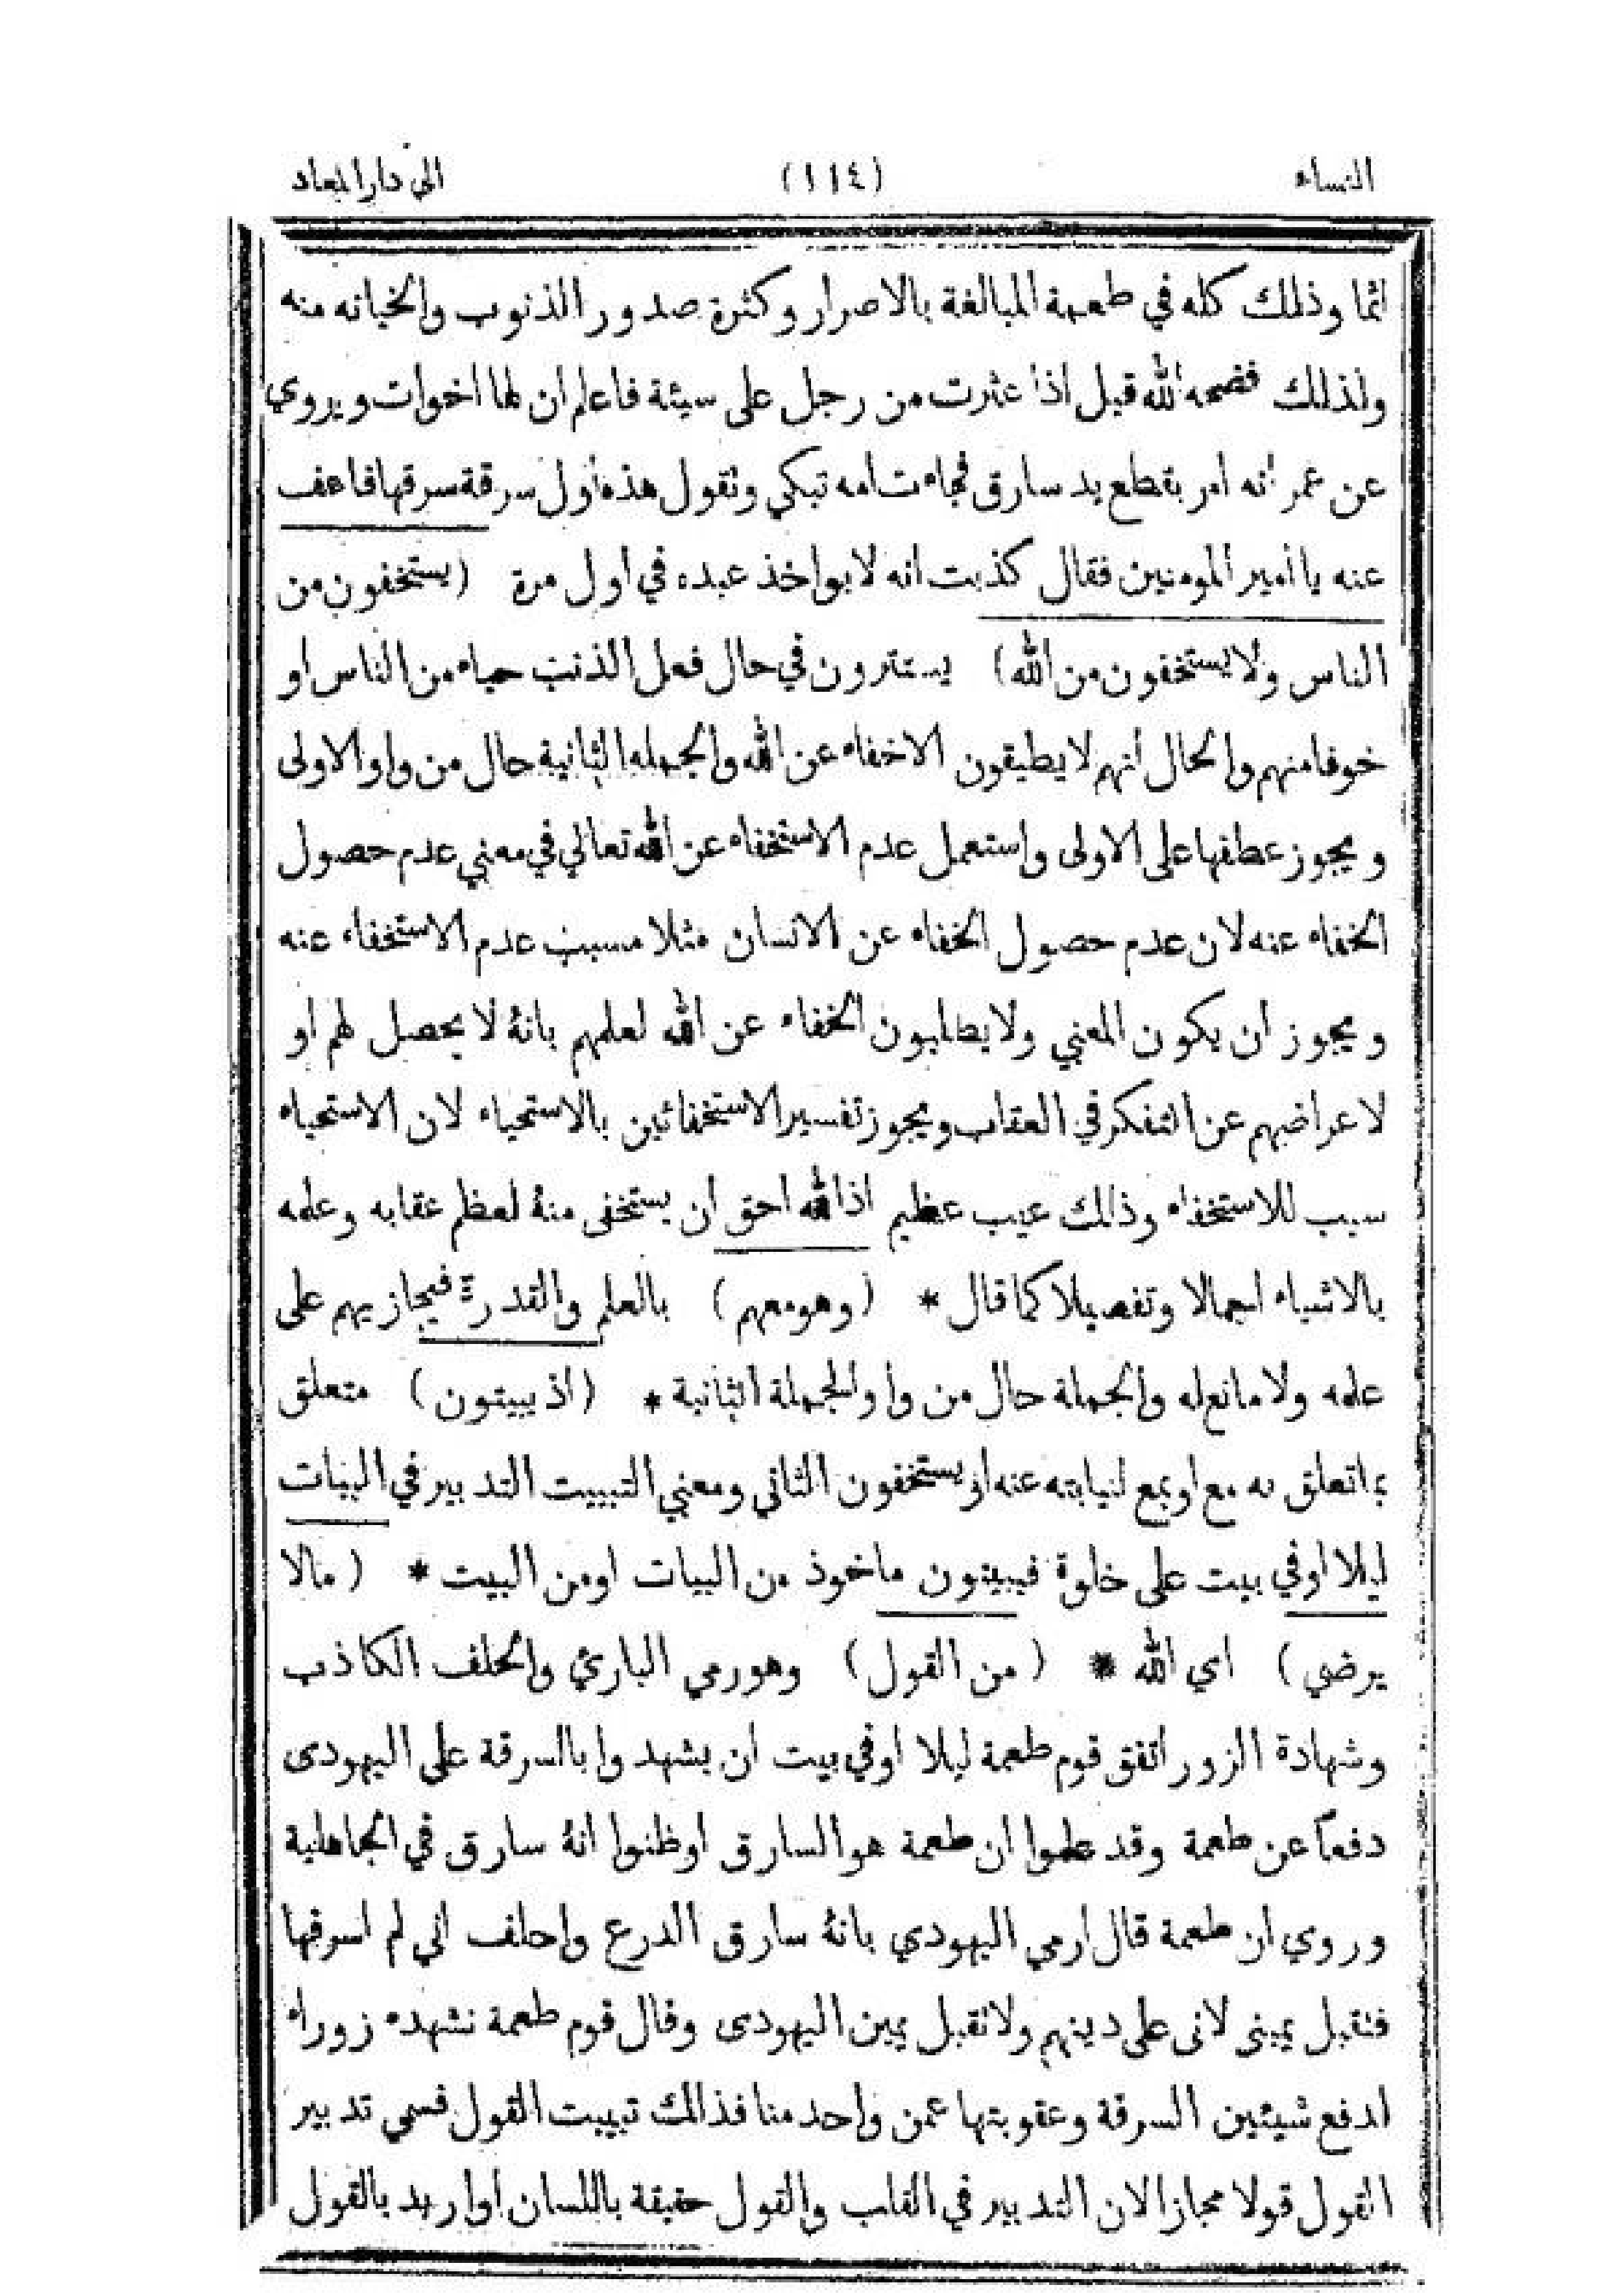 النساء (١١٤) الى دار المعاد
اثما وذلك كله في طعمة المبالغة بالاصرار وكثرة صدور الذنوب والخيانه منه
ولذلك فضحه الله قيل اذا عثرت من رجل على سيئة فاعلم ان لها اخوات ويروي
عن عمر انه امر بقطع يد سارق فجاءت امه تبكي وتقول هذه أول سرقة سرقها فاعف
عنه يا أمير المومنين فقال كذبت انه لا يواخذ عبده في اول مرة (يستخفون من
الناس ولا يستخفون من الله) يستترون في حال فعل الذنب حياء من الناس او
خوفا منهم والحال أنهم لا يطيقون الاخفاء عن الله والجمله الثانية حال من واو الاولى
ويجوز عطفها على الاولى واستعمل عدم الاستخفاء عن الله تعالي في معني عدم حصول
الخفاء عنه لان عدم حصول الخفاء عن الانسان مثلا مسبب عدم الاستخفاء عنه
ويجوز ان يكون المعني ولا يطلبون الخفاء عن الله لعلمهم بانهُ لا يحصل لهم او
لاعراضهم عن التفكر في العقاب ويجوز تفسير الاستخفائين بالاستحياء لان الاستحياء
سبب للاستخفاء وذالك عيب عظيم اذ الله احق ان يستخفى منهُ لعظم عقابه وعلمه
بالاشياء اجمالا وتفصيلا كما قال * (وهو معهم) بالعلم والقدرة فيجازيهم على
علمه ولا مانع له والجملة حال من واو الجملة الثانية * (اذ يبيتون) متعلق
بما تعلق به مع او بمع لنيابته عنه او يستخفون الثاني ومعني التبييت التدبير في البيات
ليلا او في بيت على خلوة فيبيتون ماخوذ من البيات او من البيت * (مالا
يرضي) اي الله * (من القول) وهو رمي البارئ والحلف الكاذب
وشهادة الزور اتفق قوم طعمة ليلا او في بيت ان يشهدوا بالسرقة على اليهودى
دفعاً عن طعمة وقد علموا ان طعمة هو السارق او ظنوا انهُ سارق في الجاهلية
وروي ان طعمة قال ارمي اليهودي بانهُ سارق الدرع واحلف اني لم اسرقها
فتقبل يمينى لانى على دينهم ولا تقبل يمين اليهودى وقال قوم طعمة نشهده زوراه
لدفع شيئين السرقة وعقوبتها عمن واحد منا فذالك تبييت القول فسمي تدبير
القول قولا مجازا لان التدبير في القلب والقول حقيقة باللسان او اريد بالقول